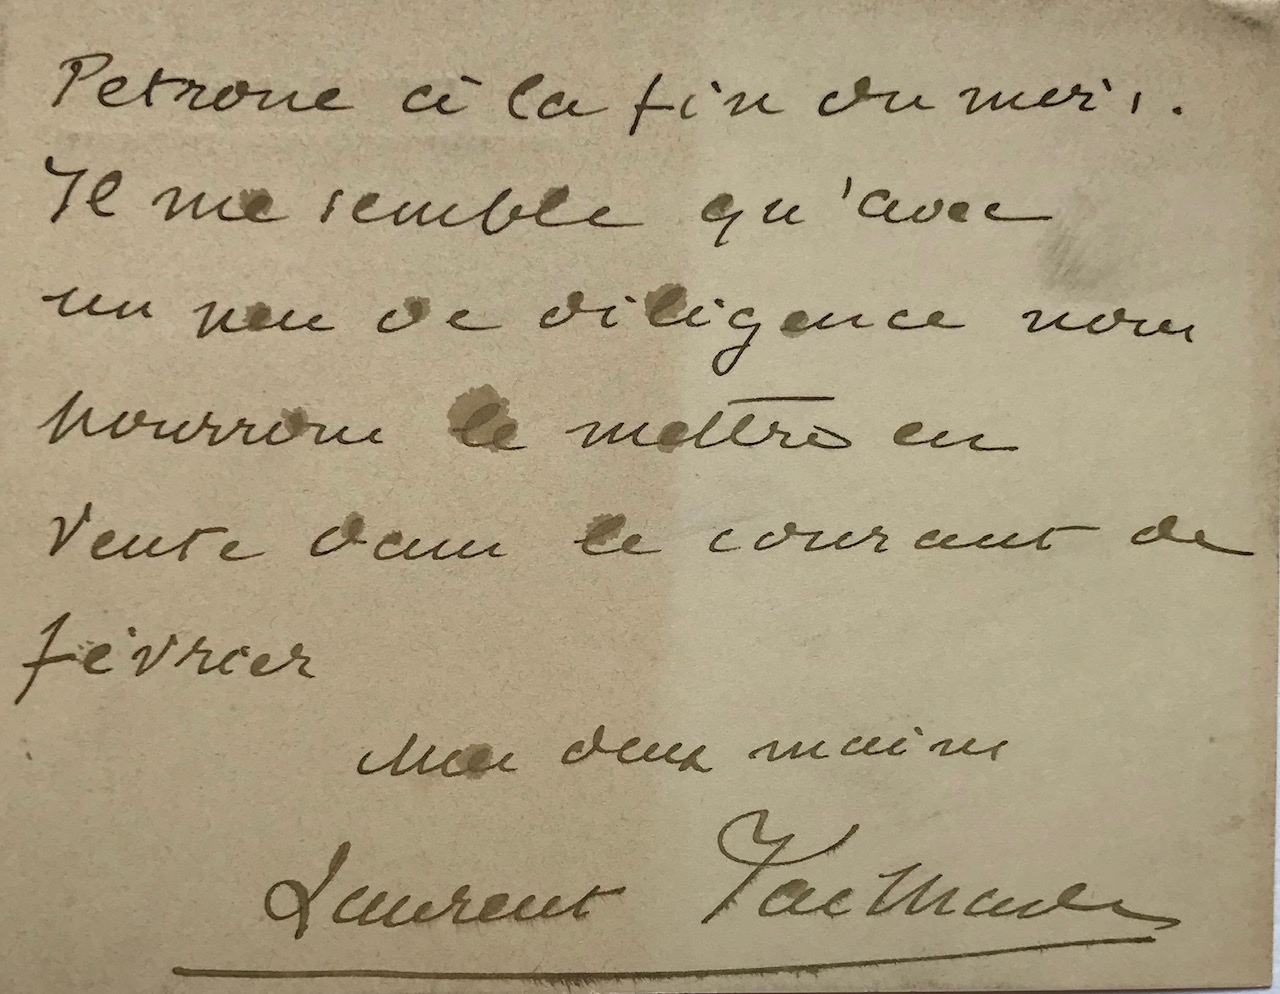 Petrone à la fin du mois.
Il me semble qu'avec
un peu de diligence nous
pourrons le mettre en
vente dans le courant de
février
Mes deux mains
Laurent Tailhade